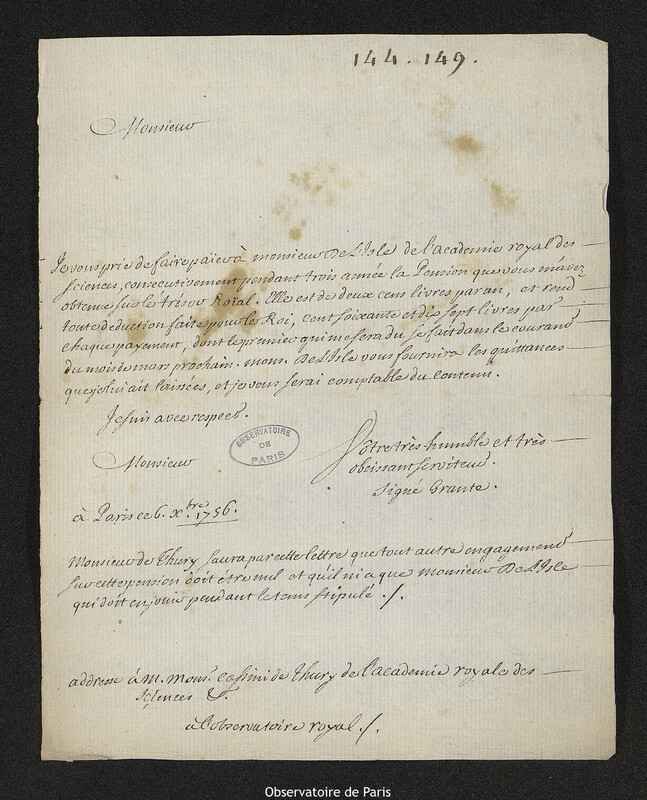 144. 149.
Monsieur
Je vous prie de faire paier à monsieur De L'Isle de l'academie royal des
sciences, consecutivement pendant trois année la Pension que vous m'avez
obtenue sur le trésor Roïal. Elle est de deux cens livres par an, et rend
toute deduction faite pour le Roi, cent soixante et dix sept livres par
chaque payement, dont le premier qui me sera du se fait dans le courand
du mois de mars prochain. mons. De L'Isle vous fournira les quittances
que je lui ait laissées, et je vous serai comptable du contenu.
Je suis avec respect.
Monsieur
OBSERVATOIRE DE PARIS
Vôtre très humble et très
obeissant serviteur.
signé Grante.
à Paris ce 6. Xbre 1756.
Monsieur de Thury saura par cette lettre que tout autre engagement
sur cette pension doit être nul et qu'il ni a que monsieur De L'Isle
qui doit en jouir pendant le tems stipulé ./.
addresse à M. Mons. cassini de Thury de l'academie royale des
sciences &.
à l'observatoire royal ./.
Observatoire de Paris